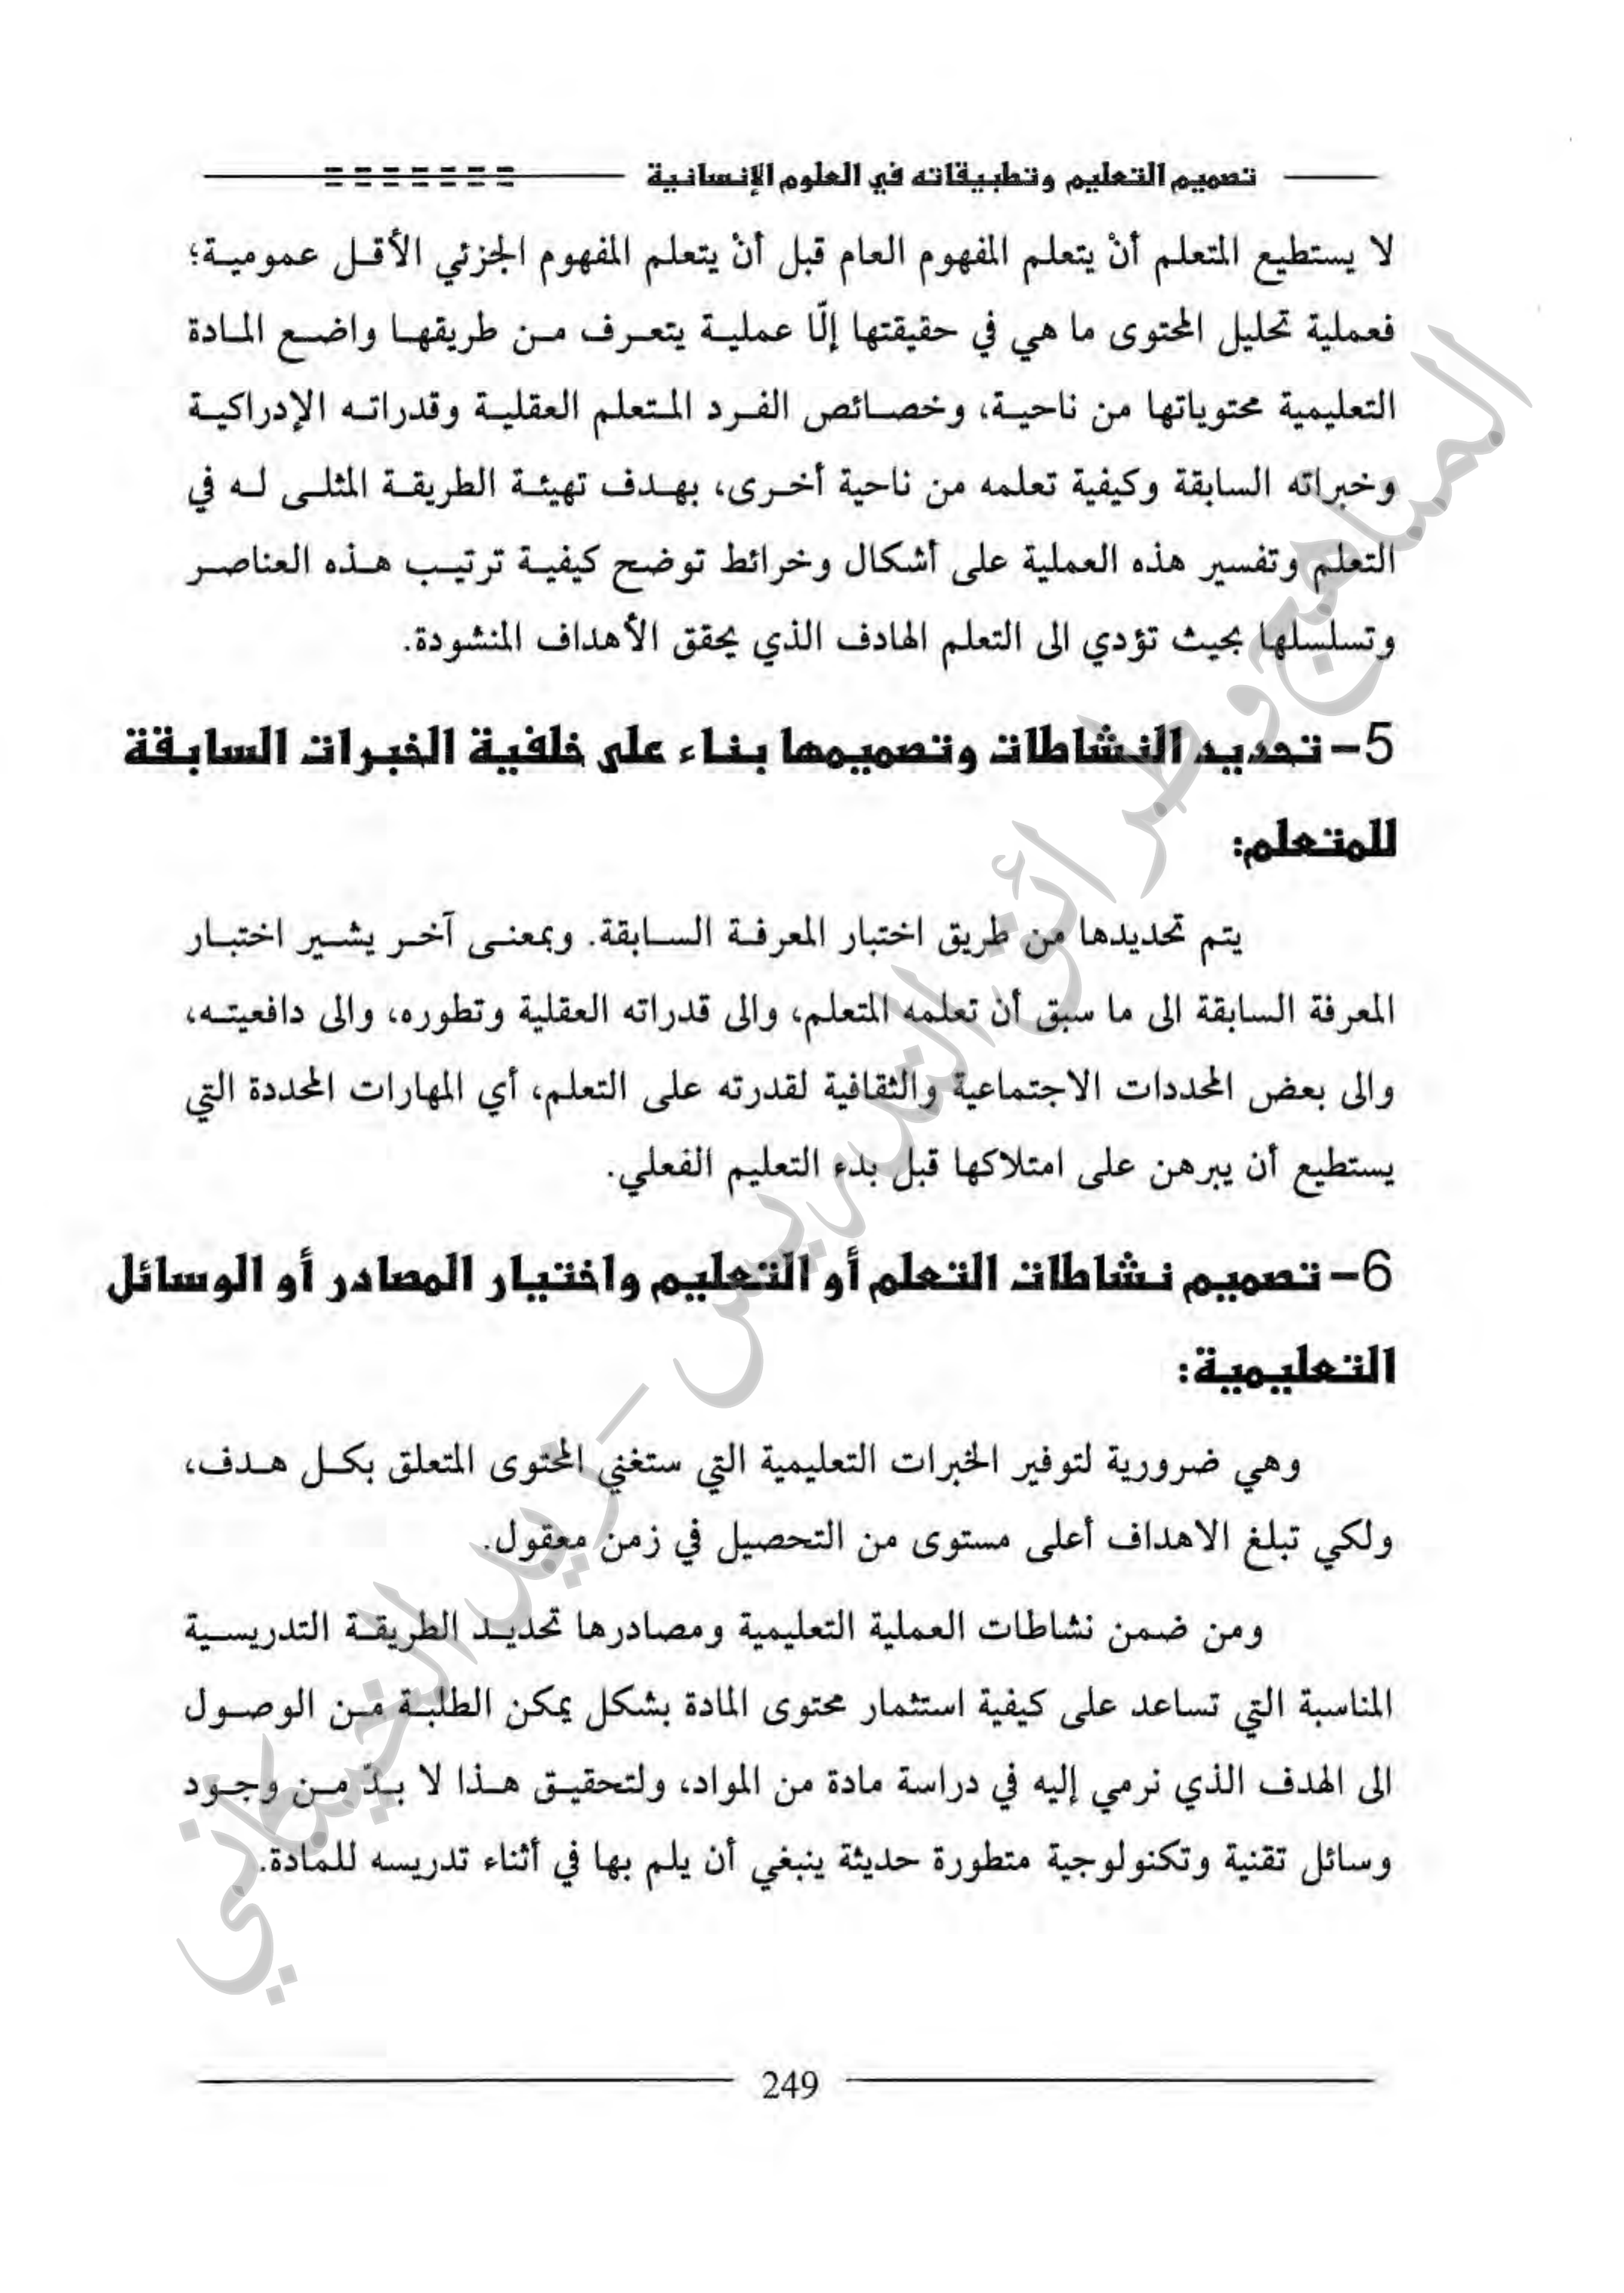 تصميم التعليم وتطبيقاته في العلوم الإنسانية
لا يستطيع المتعلم أنْ يتعلم المفهوم العام قبل أنْ يتعلم المفهوم الجزئي الأقل عمومية؛
فعملية تحليل المحتوى ما هي في حقيقتها إلّا عملية يتعرف من طريقها واضع المادة
التعليمية محتوياتها من ناحية، وخصائص الفرد المتعلم العقلية وقدراته الإدراكية
وخبراته السابقة وكيفية تعلمه من ناحية أخرى، بهدف تهيئة الطريقة المثلى له في
التعلم وتفسير هذه العملية على أشكال وخرائط توضح كيفية ترتيب هذه العناصر
وتسلسلها بحيث تؤدي الى التعلم الهادف الذي يحقق الأهداف المنشودة.
5- تحديد النشاطات وتصميمها بناء على خلفية الخبرات السابقة
للمتعلم:
يتم تحديدها من طريق اختبار المعرفة السابقة. وبمعنى آخر يشير اختبار
المعرفة السابقة الى ما سبق أن تعلمه المتعلم، والى قدراته العقلية وتطوره، والى دافعيته،
والى بعض المحددات الاجتماعية والثقافية لقدرته على التعلم، أي المهارات المحددة التي
يستطيع أن يبرهن على امتلاكها قبل بدء التعليم الفعلي.
6- تصميم نشاطات التعلم أو التعليم واختيار المصادر أو الوسائل
التعليمية:
وهي ضرورية لتوفير الخبرات التعليمية التي ستغني المحتوى المتعلق بكل هدف،
ولكي تبلغ الاهداف أعلى مستوى من التحصيل في زمن معقول.
ومن ضمن نشاطات العملية التعليمية ومصادرها تحديد الطريقة التدريسية
المناسبة التي تساعد على كيفية استثمار محتوى المادة بشكل يمكن الطلبة من الوصول
الى الهدف الذي نرمي إليه في دراسة مادة من المواد، ولتحقيق هذا لا بدّ من وجود
وسائل تقنية وتكنولوجية متطورة حديثة ينبغي أن يلم بها في أثناء تدريسه للمادة.
249
المناهج وطرائق التدريس - زيد الخيكاني